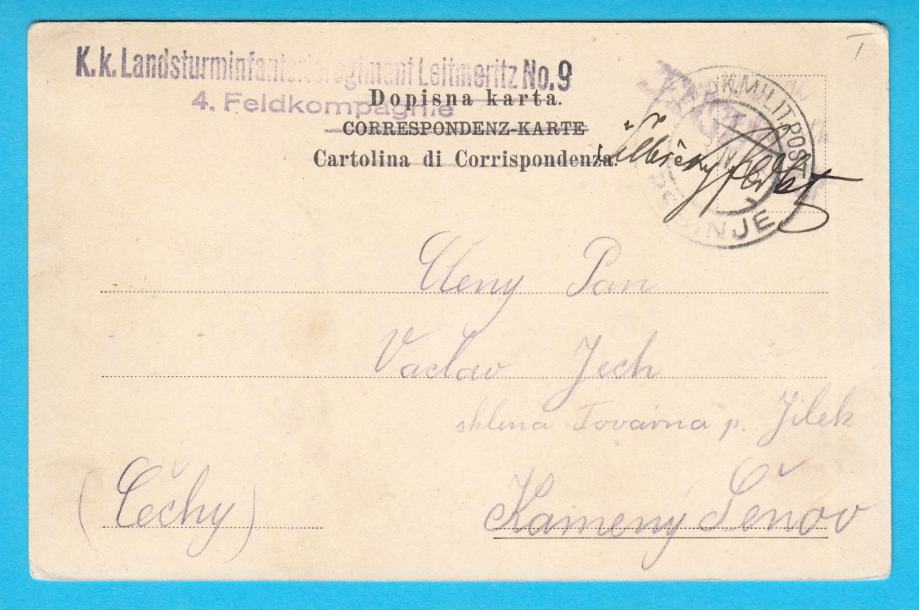 K.k. Landsturminfanterieregiment Leitmeritz No. 9
4. Feldkompagnie
Dopisna karta.
CORRESPONDENZ-KARTE
Cartolina di Corrispondenza.
K. MILIT. POST
Cteny Pan
Vaclav Jech
sklena Tovarna p. Jilek
(Čechy)
Kamený Šenov